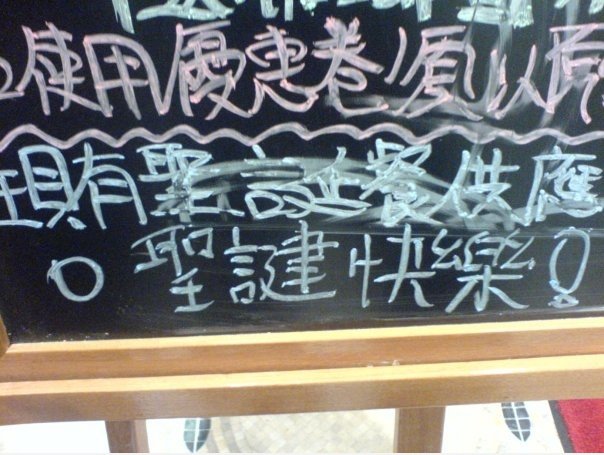 使用優惠卷須以原
現有聖誕餐供應
。聖誕快樂!